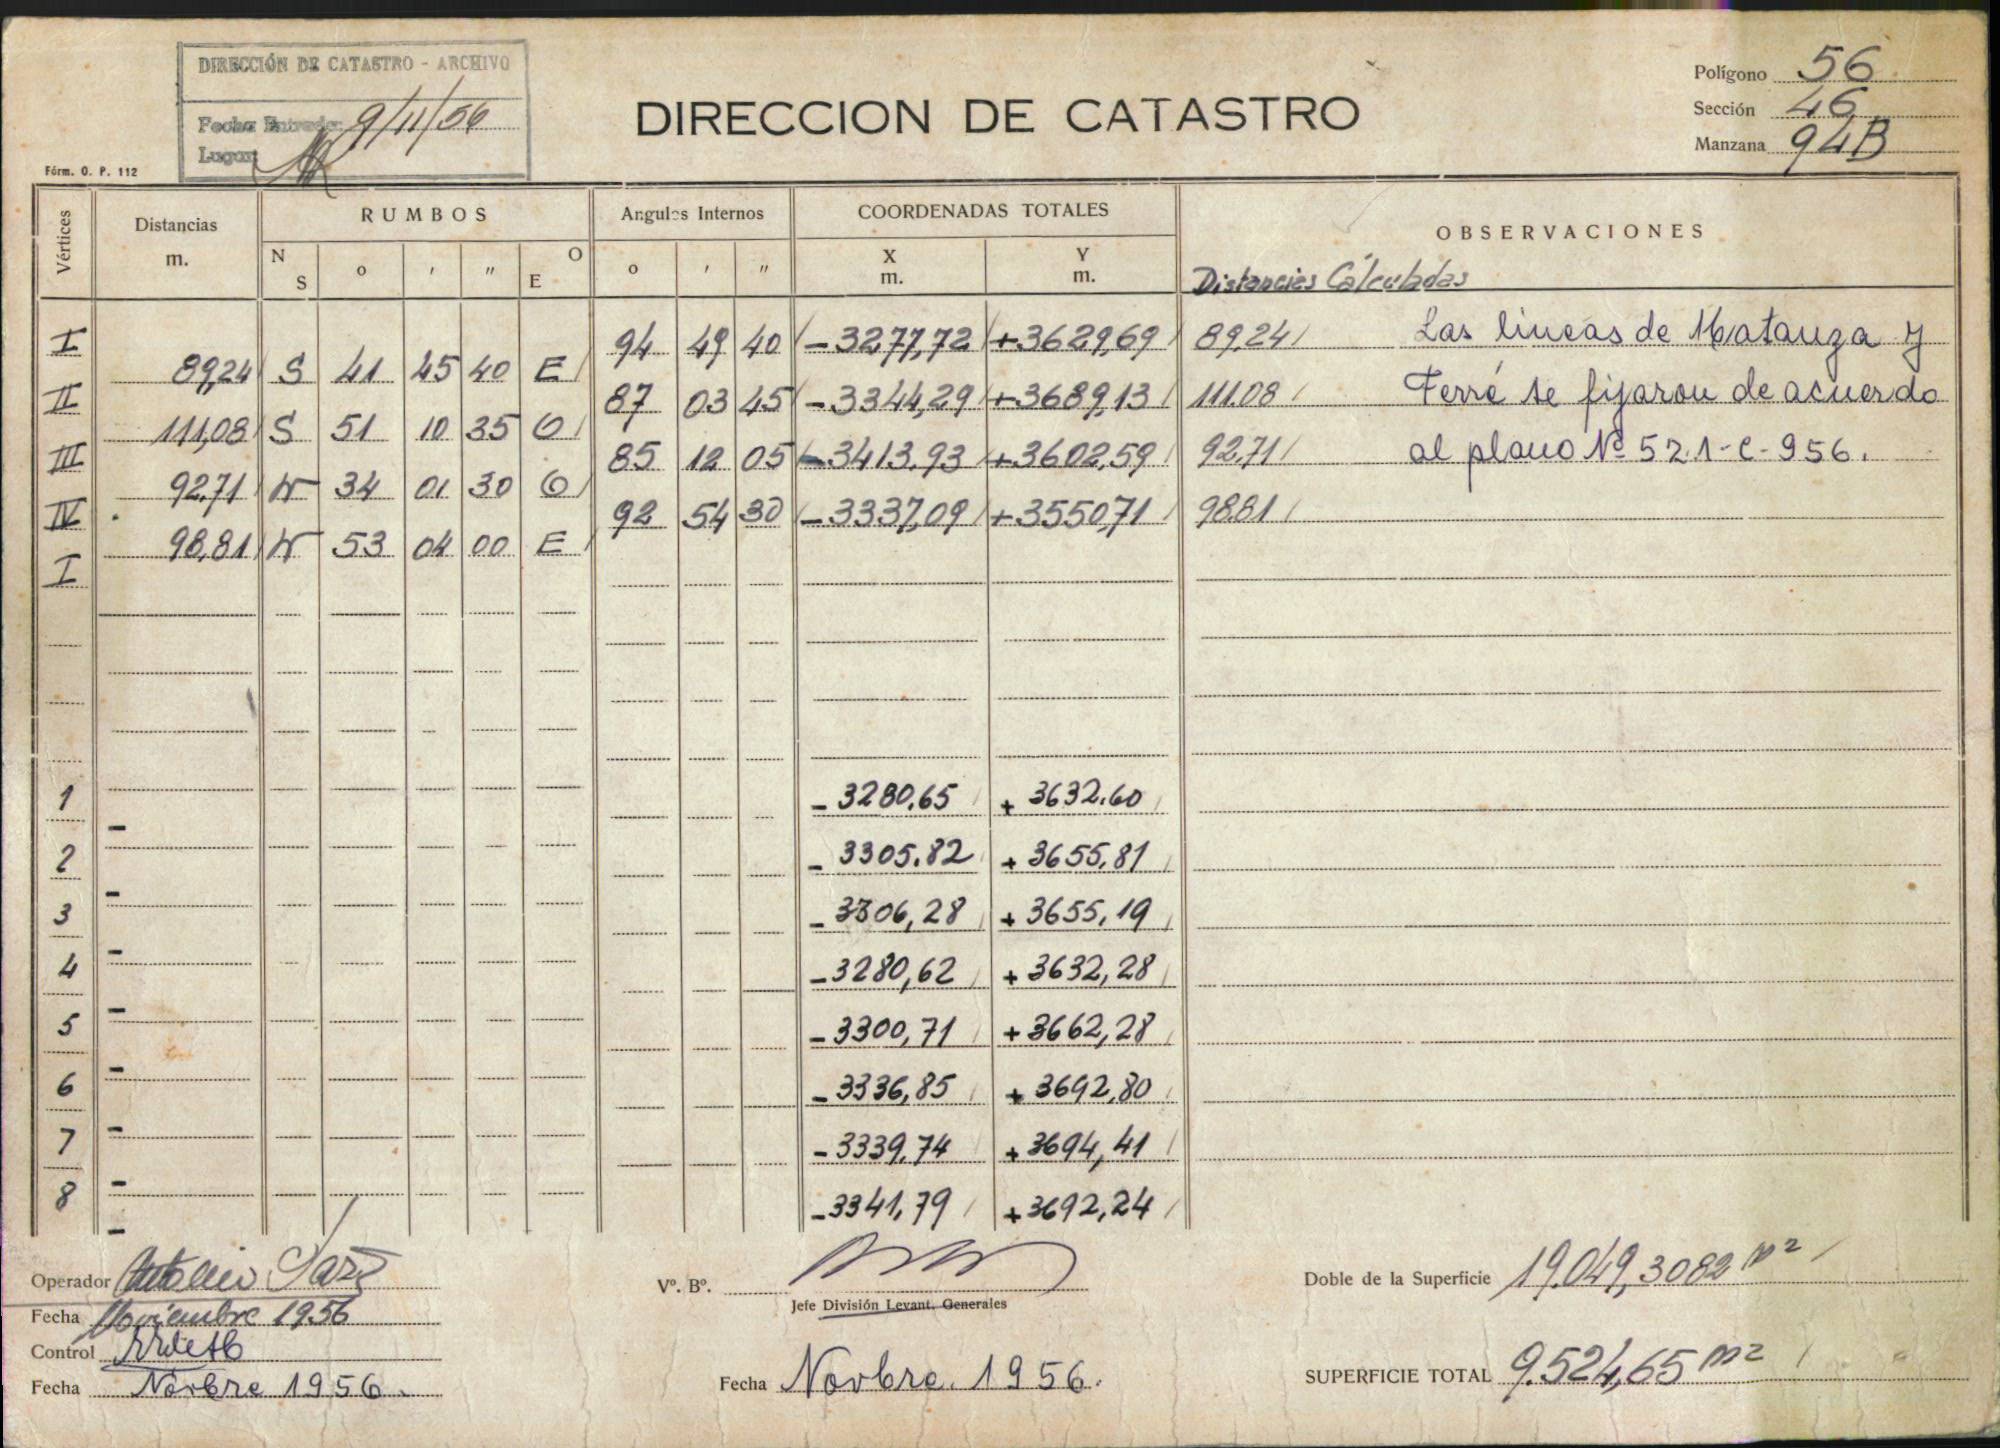 DIRECCIÓN DE CATASTRO - ARCHIVO
Fecha Entrada: 9/11/56
Lugar:
Fórm. O. P. 112
DIRECCION DE CATASTRO
Polígono 56
Sección 46
Manzana 94B
Vértices Distancias m. RUMBOS Angulos Internos COORDENADAS TOTALES OBSERVACIONES
N S o ' " O E o ' " X m. Y m. Distancias Cálculadas
I 94 49 40 -3277,72 +3629,69 89.24 Las lineas de Matanza y
89,24 S 41 45 40 E
II 87 03 45 -3344,29 +3689,13 111.08 Ferré se fijaron de acuerdo
111,08 S 51 10 35 O
III 85 12 05 -3413,93 +3602,59 92.71 al plano Nº 521-C-956.
92,71 N 34 01 30 O
IV 92 54 30 -3337,09 +3550,71 98.81
98,81 N 53 04 00 E
I
1 - 3280,65 + 3632,60
2 - 3305,82 + 3655,81
3 - 3306,28 + 3655,19
4 - 3280,62 + 3632,28
5 - 3300,71 + 3662,28
6 - 3336,85 + 3692,80
7 - 3339,74 + 3694,41
8 - 3341,79 + 3692,24
Operador
Fecha Noviembre 1956
Control
Fecha Novbre 1956.
Vº. Bº.
Jefe División Levant. Generales
Fecha Novbre. 1956.
Doble de la Superficie 19.049,3082 m²
SUPERFICIE TOTAL 9.524,65 m²